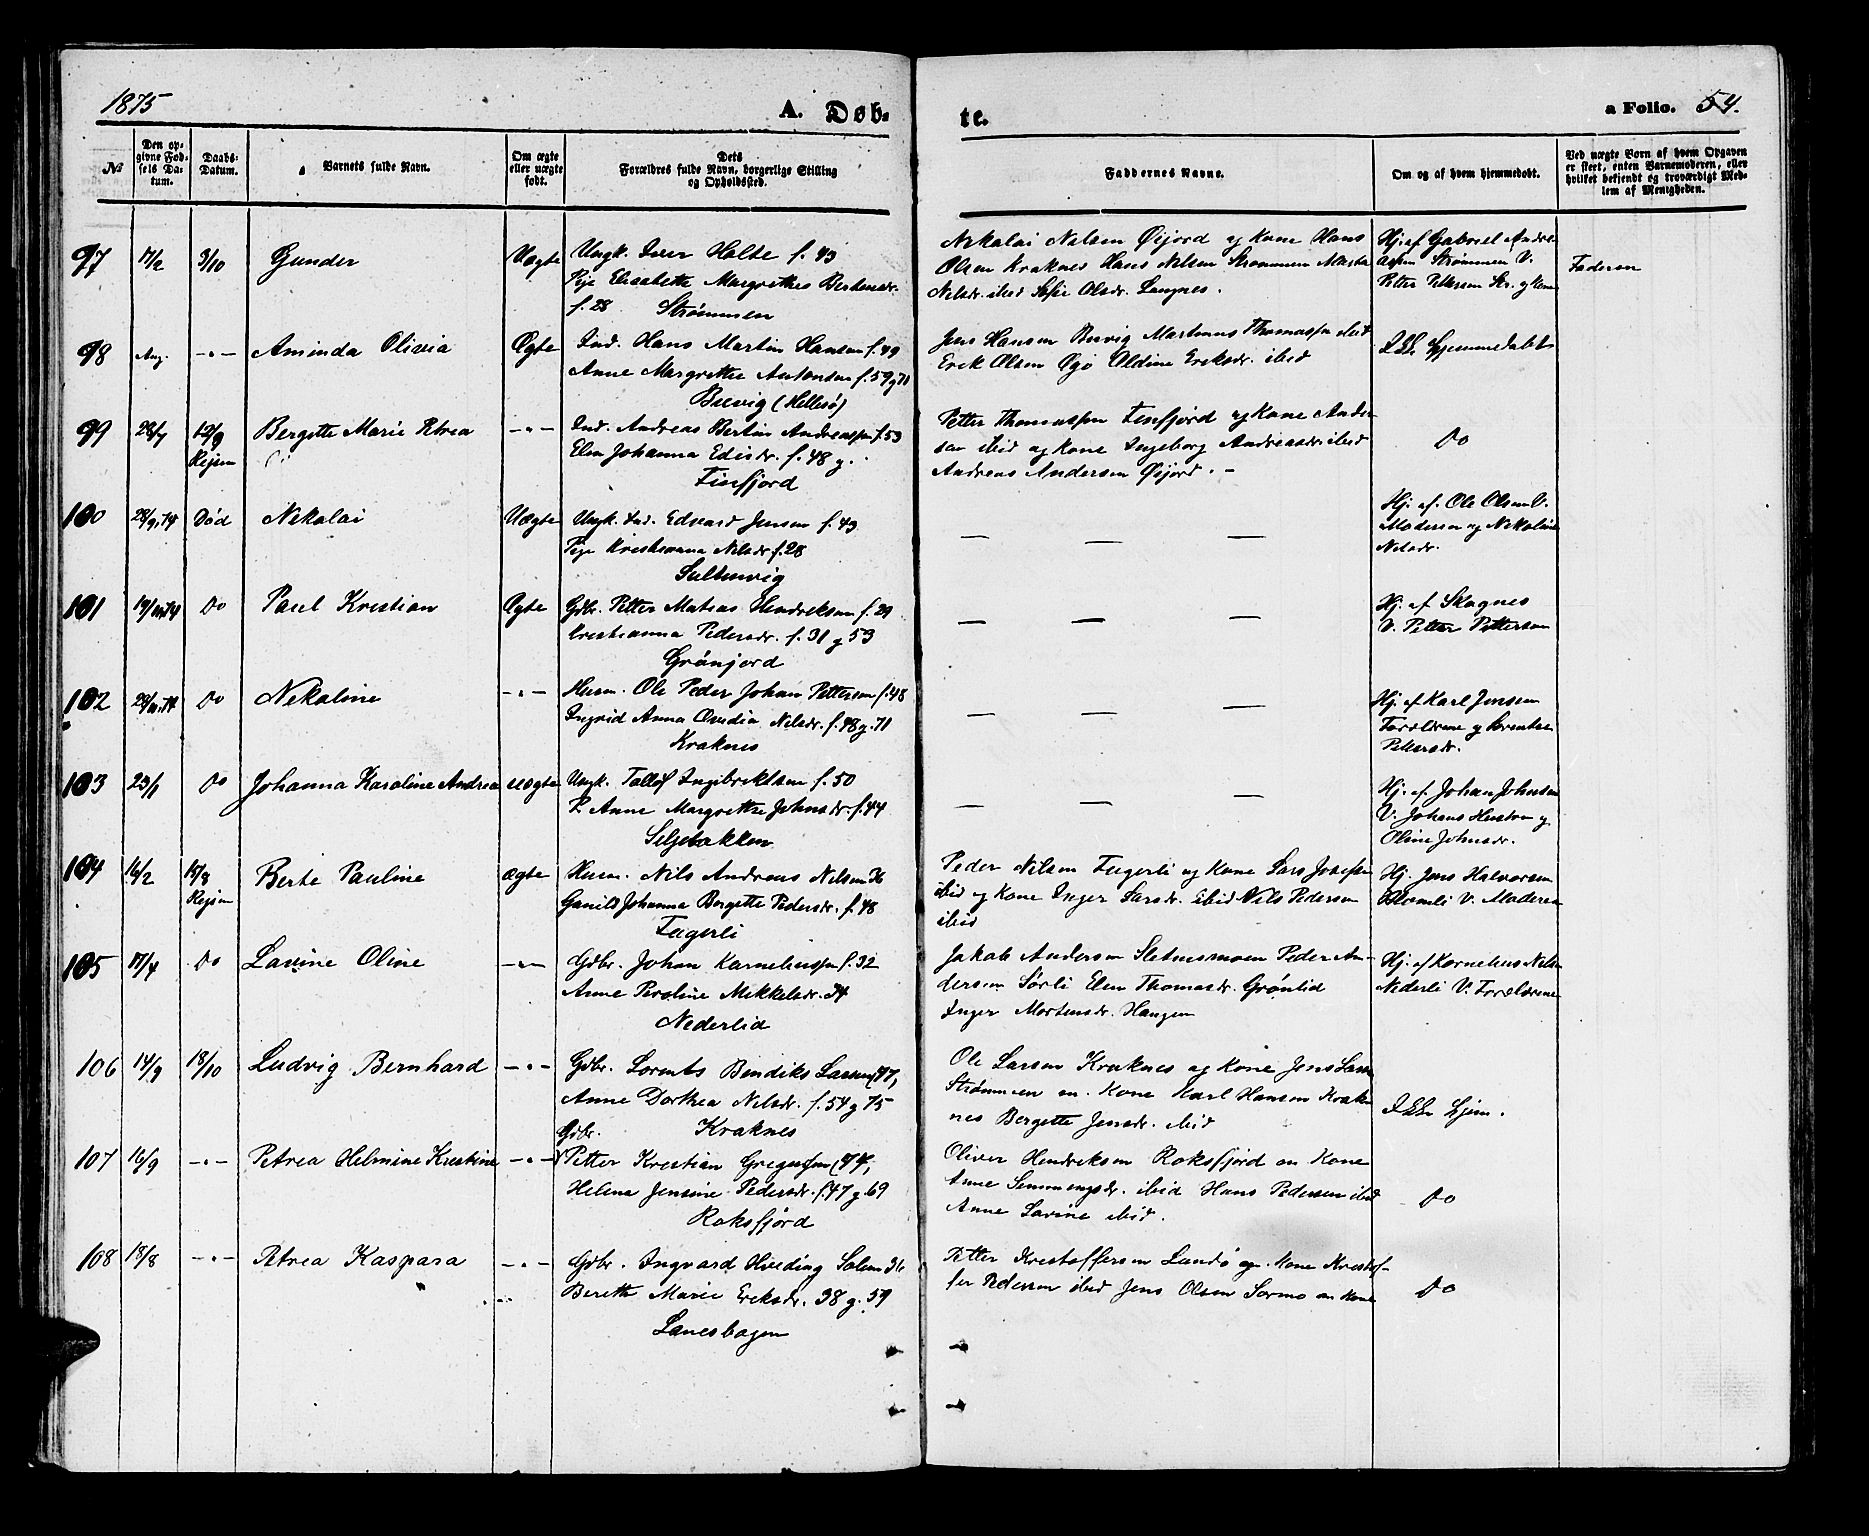 1875
A. Døb-
te.
a Folio. 54.
№
Den op-
givne Fød-
sels Da-
tum.
Daabs-
Datum.
Barnets fulde Navn.
Om ægte
eller uægte
født.
Dets
Forældres fulde Navn, borgerlige Stilling
og Opholdssted.
Faddernes Navne.
Om og af hvem hjemmedøbt.
Ved uægte Børn af hvem Opgaven
er skeet, enten Barnemoderen, eller
hvilket bekjendt og troværdigt Med-
lem af Menigheden.
97 17/2 3/10 Gunder Uægte Ungk. Iver Holte f. 43
Pige Elisabeth Margrethe Berntsdr.
f. 28 Strømmen
Nikolai Nilsen Øijord og Kone Hans
Olsen Kraknes Hans Nilsen Strømmen Marta
Nilsdr. ibid Sofie Olsdr. Langnes.
Hj. af Gabriel Andre-
asen Strømmen V.
Petter Pettersen Str. og Kone
Faderen
98 Aug. -"- Aminda Olivia Ægte Ind. Hans Martin Hansen f. 49
Anne Margrethe Antonsen f. 59 g 71
Brevig (Hillesø)
Jens Hansen Brevig Martinus Thomassen ibid
Erik Olsen Øgø Oldine Eriksdr. ibid
Ikke Hjemmedøbt
99 28/7 12/9 Bergitte Marie Petrea -"- Ind. Andreas Bertin Andreassen f. 53
Rejsen
Elen Johanna Edisdr. f. 48 g.
Finfjord
Petter Thomassen Finfjord og Kone Ander
sen ibid og Kone Ingeborg Andreasdr ibid
Andreas Andersen Øijord. -
Do
100 28/9.74 Død Nikolai Uægte Ungk. Ind. Edvard Jensen f. 43
Pige Kristianna Nilsdr f. 28
Sultenvig
— — —
Hj. af. Ole Olsen V.
Moderen og Nikoline
Nilsdr.
101 Do Paul Kristian Ægte Gdbr. Petter Matias Hendriksen f. 29
Kristianna Pedersdr. f. 31 g 53
Grønjord
— — —
Hj. af Skognes
V. Petter Pettersen
102 Do Nekoline -"- Husm. Ole Peder Johan Pettersen f. 48
Ingrid Anna Ovedia Nilsdr. f. 48 g. 71
Kraknes
— — —
Hj. af Karl Jensen
Forældrene og Berntine
Pettersdr.
103 23/1 Do Johanna Karoline Andrea uægte Ungk. Tollef Ingebrektsen f. 50
P. Anne Margrethe Johnsdr. f. 44
Seljebakken
— — —
Hj. af Johan Johnsen
V. Johans Hustru og
Oline Johnsdr.
104 16/2 15/8 Berte Pauline ægte Husm. Nils Andreas Nilsen 36
Rejsen
Gunild Johanna Bergitte Pedersdr. f. 48
Fagerli
Peder Nilsen Fagerli og Kone Lars Josefsen
ibid og Kone Inger Larsdr. ibid Nils Pedersen
ibid
Hj. Jens Halvorsen
V. Moderen
105 17/4 Do Lavine Oline -"- Gdbr. Johan Kornelinssen f. 32
Anne Peroline Mikkelsdr. 34
Nederlid
Jakob Andersen Sletnesmoen Peder An-
dersen Sørli Elen Thomasdr. Grønlid
Inger Mortensdr. Haugen
Hj. af Kornelius Nilsen
Nederli V. Forældrene
106 14/9 18/10 Ludvig Bernhard -"- Gdbr. Lornts Bendiks Larsen 47,
Anne Dorthea Nilsdr. f. 54 g 75
Kraknes
Ole Larsen Kraknes og Kone Jens Larsen
Strømmen en. Kone Karl Hansen Krak-
nes Bergette Jensdr. ibid
Ikke Hjem.
107 16/9 -"- Petrea Helmine Kristine -"- Gdbr.
Petter Kristian Gregussen 44,
Helena Jensine Pedersdr. f. 47 g. 69
Roksfjord
Oliver Hendriksen Roksfjord en Kone
Anne Semmingsdr. ibid Hans Pedersen ibid
Anne Lavine ibid.
Do
108 18/8 -"- Petrea Kaspara -"- Gdbr. Ingvard Hveding Solem 36
Berette Marie Eriksdr. 38 g. 59
Lanesbogen
Petter Kristoffersen Lundø og. Kone Kristof-
fer Pedersen ibid Jens Olsen Sørmo en Kone
Do